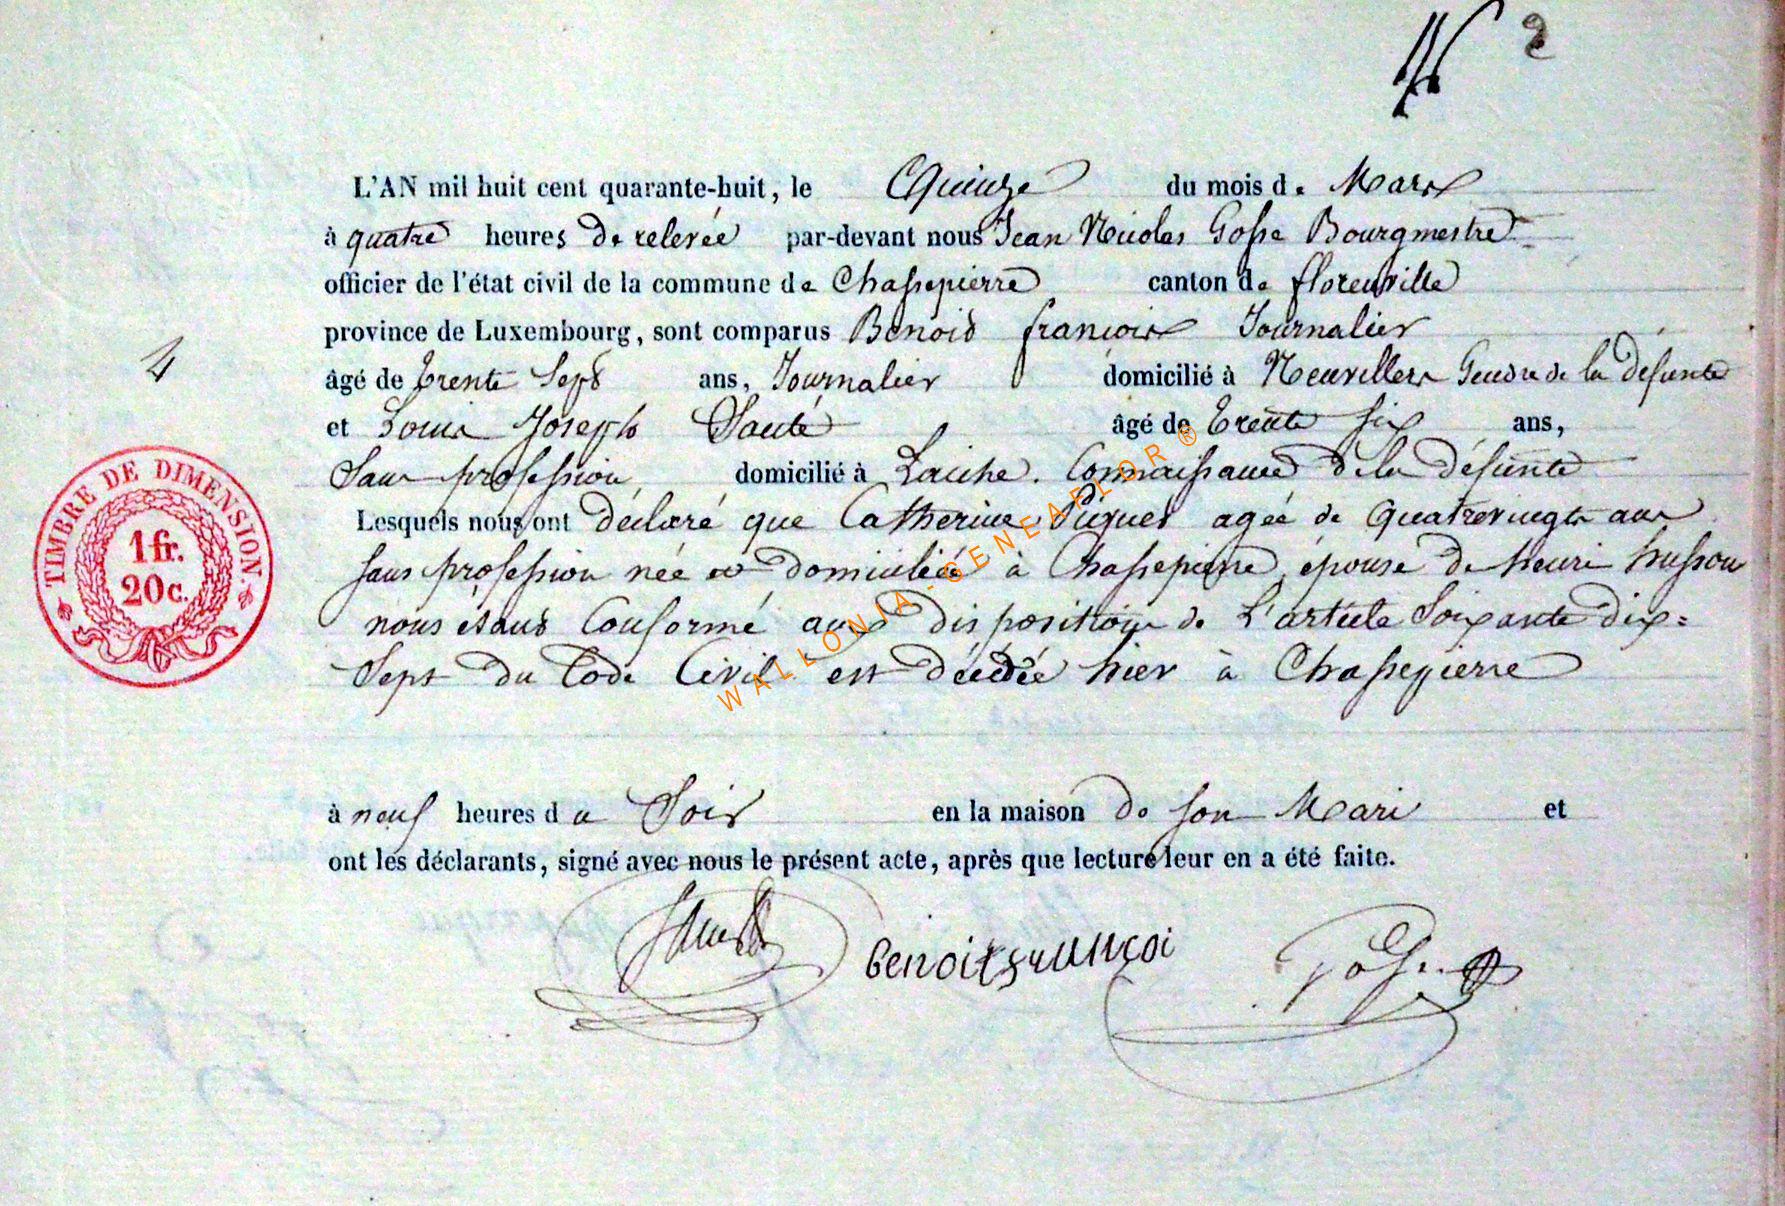 2
L'AN mil huit cent quarante-huit, le Quinze du mois de Mars
à quatre heures de relevée par-devant nous Jean Nicolas Gosse Bourgmestre
officier de l'état civil de la commune de Chassepierre canton de florenville
province de Luxembourg, sont comparus Benoit françois Journalier
4
âgé de trente Sept ans, Journalier domicilié à Neuvillers Gendre de la défunte
et Louis Joseph Santé âgé de trente six ans,
Sans profession domicilié à Laiche. Connaissance de la défunte
Lesquels nous ont déclaré que Catherine Piguet agée de Quatrevingts ans
sans profession née et domiciliée à Chassepierre, épouse de henri husson
nous étant Conformé aux disposition de L'article Soixante dix=
Sept du Code Civil est décédée hier à Chassepierre
à neuf heures du Soir en la maison de son Mari et
ont les déclarants, signé avec nous le présent acte, après que lecture leur en a été faite.
benoit françoi
Gosse
TIMBRE DE DIMENSION.
1 fr.
20 c.
WALLONIA-GENEAFLOR®